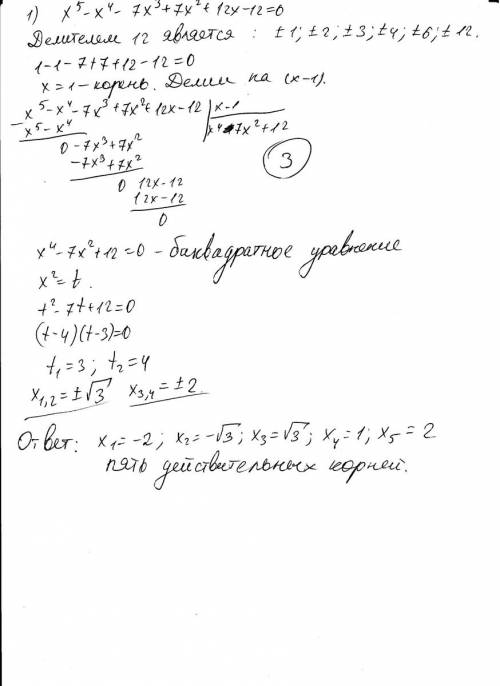 1) x⁵ - x⁴ - 7x³ + 7x² + 12x - 12 = 0
Делителем 12 является : ± 1; ± 2; ± 3; ± 4; ± 6; ± 12.
1 - 1 - 7 + 7 + 12 - 12 = 0
x = 1 - корень. Делим на (x-1).
x⁵ - x⁴ - 7x³ + 7x² + 12x - 12 | x - 1
x⁵ - x⁴ x⁴ - 7x² + 12
0 - 7x³ + 7x²
- 7x³ + 7x² 3
0 12x - 12
12x - 12
0
x⁴ - 7x² + 12 = 0 - биквадратное уравнение
x² = t.
t² - 7t + 12 = 0
(t-4)(t-3)=0
t₁ = 3 ; t₂ = 4
x₁,₂ = ± √3 x₃,₄ = ± 2
Ответ: x₁ = -2 ; x₂ = -√3 ; x₃ = √3 ; x₄ = 1 ; x₅ = 2
пять действительных корней.